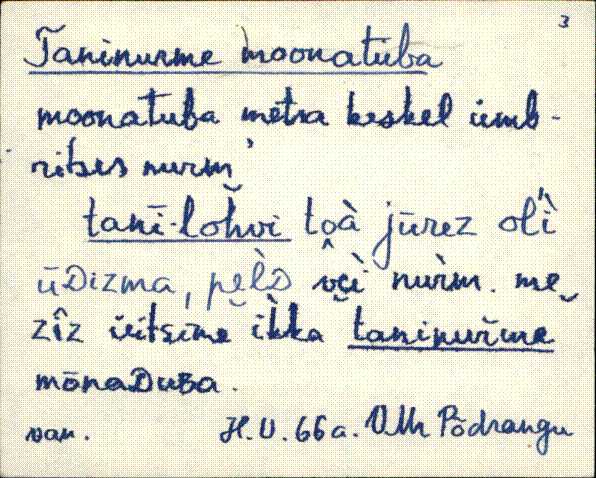 3
Taninurme moonatuba
moonatuba metsa keskel ümb-
ritses nurm
tanī-lohvi toà jūrez ol'i
ūDizma, pèlD nurm. me
zîz ütsime ikka taninurme
mōnaDuBa.
van. H.U. 66a. VMr Põdrangu